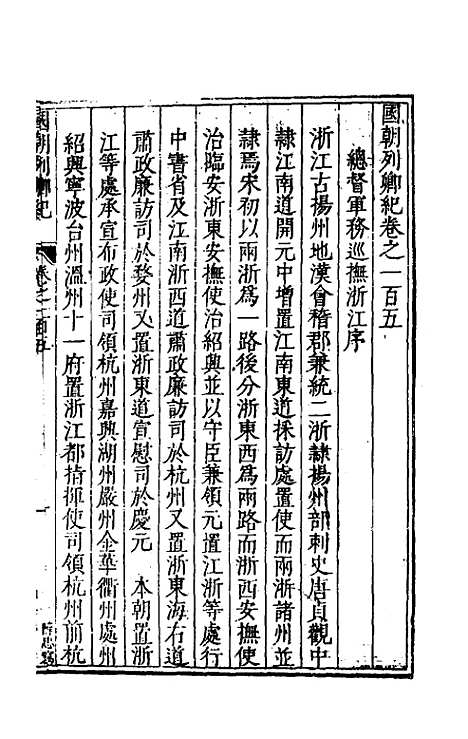 國朝列卿紀卷之一百五
總督軍務巡撫浙江序
浙江古揚州地漢會稽郡兼統二浙隸揚州部刺史唐貞觀中
隸江南道開元中增置江南東道採訪處置使而兩浙諸州並
隸焉宋初以兩浙爲一路後分浙東西爲兩路而浙西安撫使
治臨安浙東安撫使治紹興並以守臣兼領元置江浙等處行
中書省及江南浙西道肅政廉訪司於杭州又置浙東海右道
肅政廉訪司於婺州又置浙東道宣慰司於慶元 本朝置浙
江等處承宣布政使司領杭州嘉興湖州嚴州金華衢州處州
紹興寧波台州溫州十一府置浙江都指揮使司領杭州前杭
國朝列卿紀 卷之一百五 一